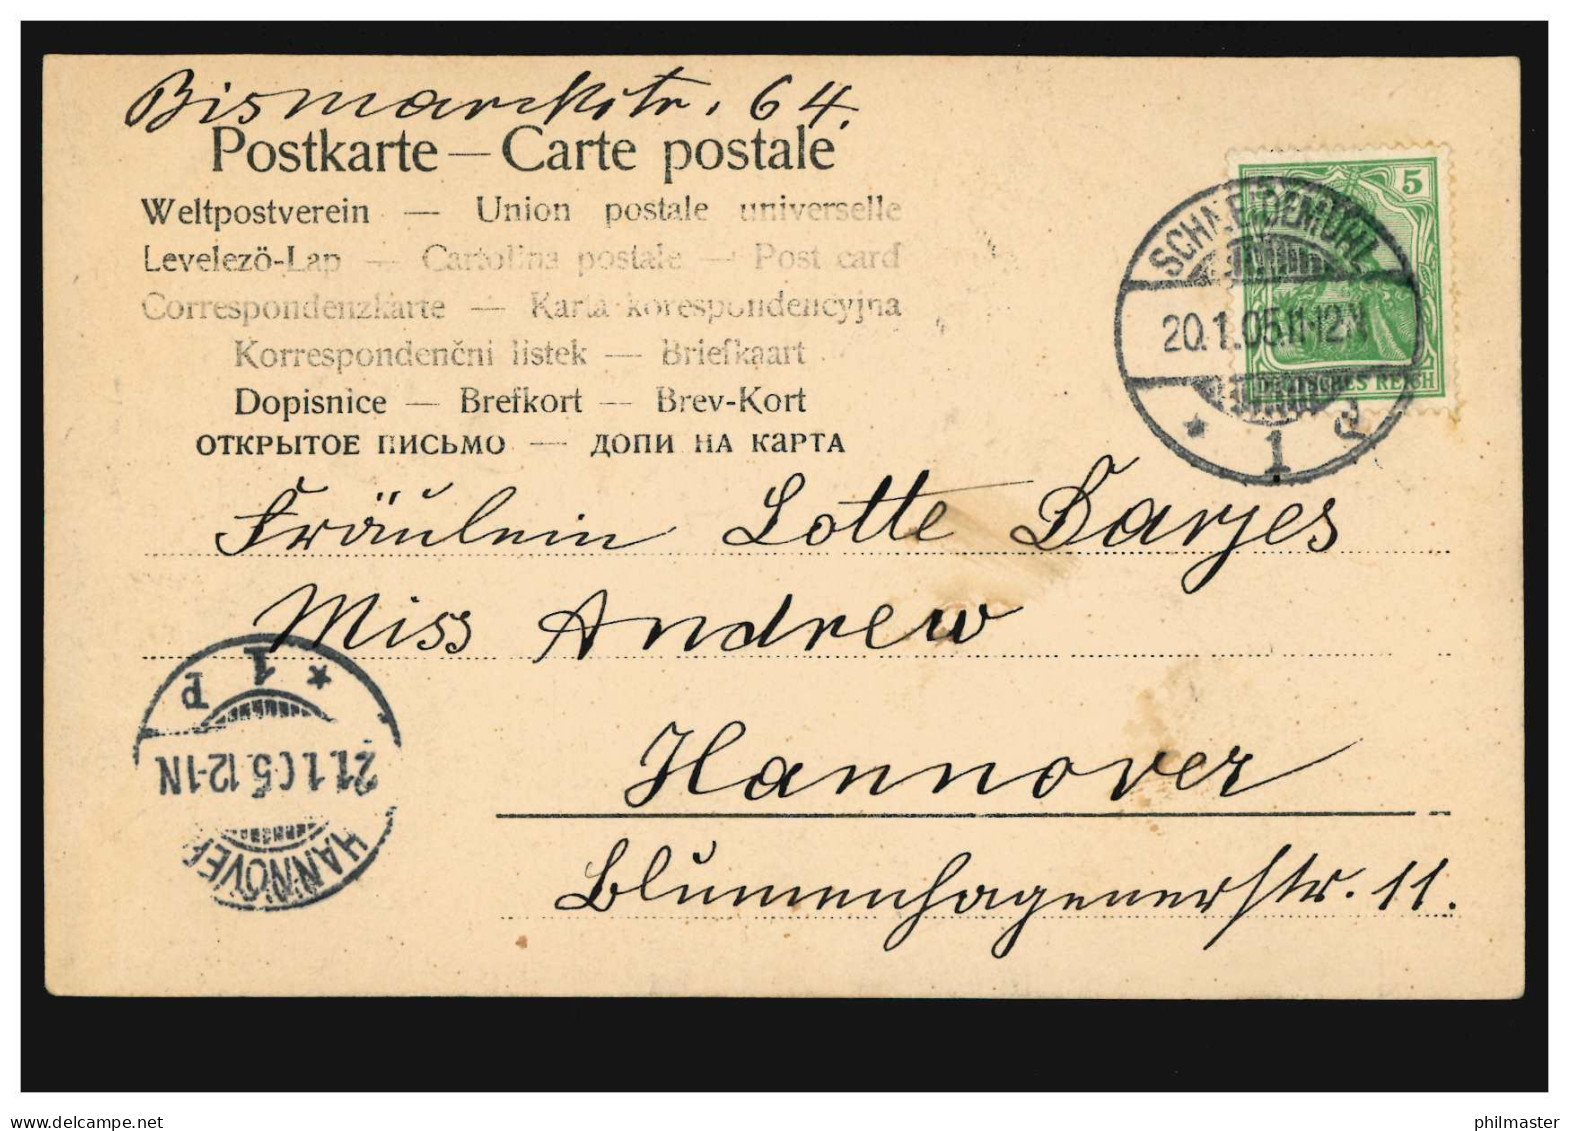 Bismarckstr. 64.
Postkarte — Carte postale
Weltpostverein — Union postale universelle
Levelezö-Lap — Cartolina postale — Post card
Correspondenzkarte — Karta korespondencyjna
Korrespondenční listek — Briefkaart
Dopisnice — Brefkort — Brev-Kort
ОТКРЫТОЕ ПИСЬМО — ДОПИ НА КАРТА
5
SCHNEIDEMÜHL
20.1.05.11-12N
DEUTSCHES REICH
* 1
Fräulein Lotte Darjes
Miss Andrew
Hannover
Blumenhagenerstr. 11.
HANNOVER
21.1.05.12-1N
* 1 p
delcampe.net
philmaster